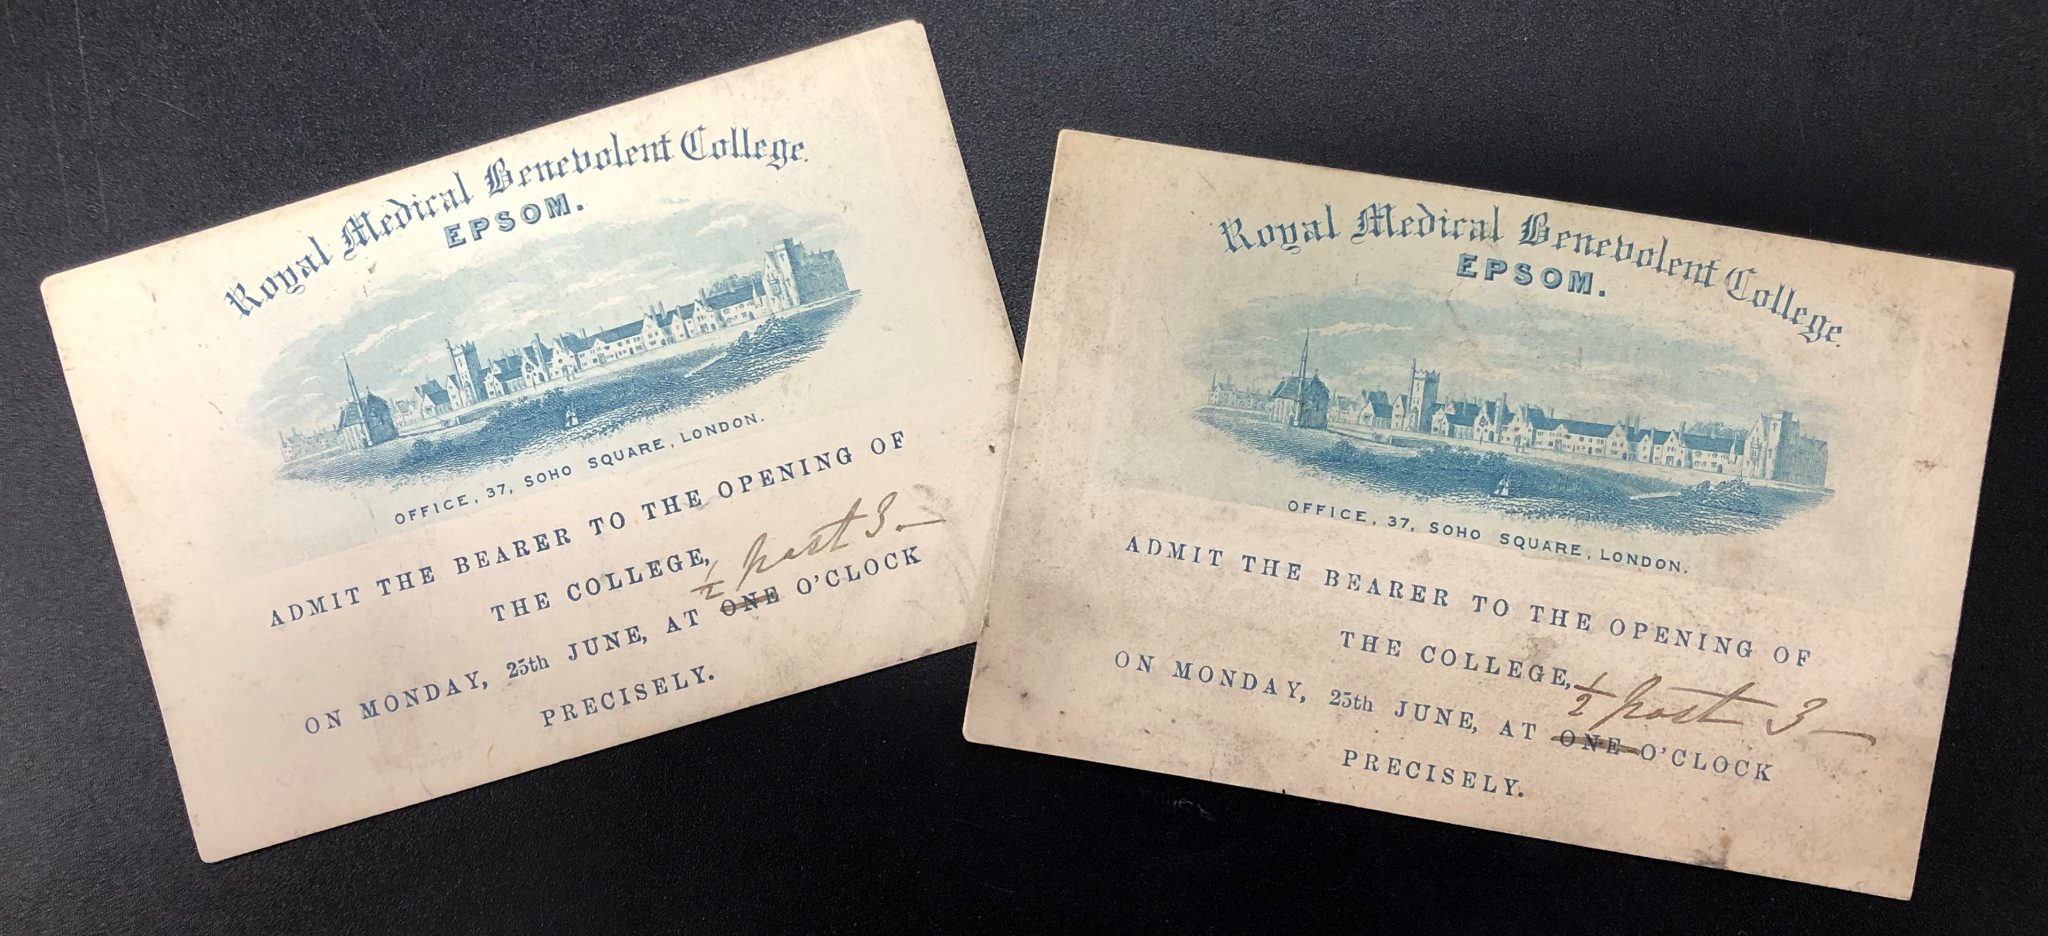 Royal Medical Benevolent College.
EPSOM.
OFFICE, 37, SOHO SQUARE, LONDON.
ADMIT THE BEARER TO THE OPENING OF
THE COLLEGE,
½ past 3-
ON MONDAY, 25th JUNE, AT ONE O'CLOCK
PRECISELY.
Royal Medical Benevolent College.
EPSOM.
OFFICE, 37, SOHO SQUARE, LONDON.
ADMIT THE BEARER TO THE OPENING OF
THE COLLEGE,
½ past 3-
ON MONDAY, 25th JUNE, AT ONE O'CLOCK
PRECISELY.